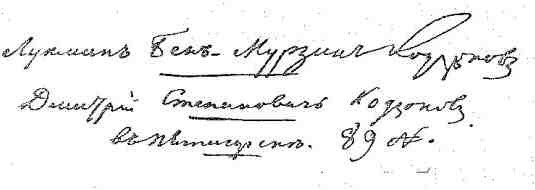 Лукманъ Бекъ-Мурзинъ Кодзоковъ
Дмитрій Степановичъ Кодзоковъ
въ Пятигорскѣ. 89